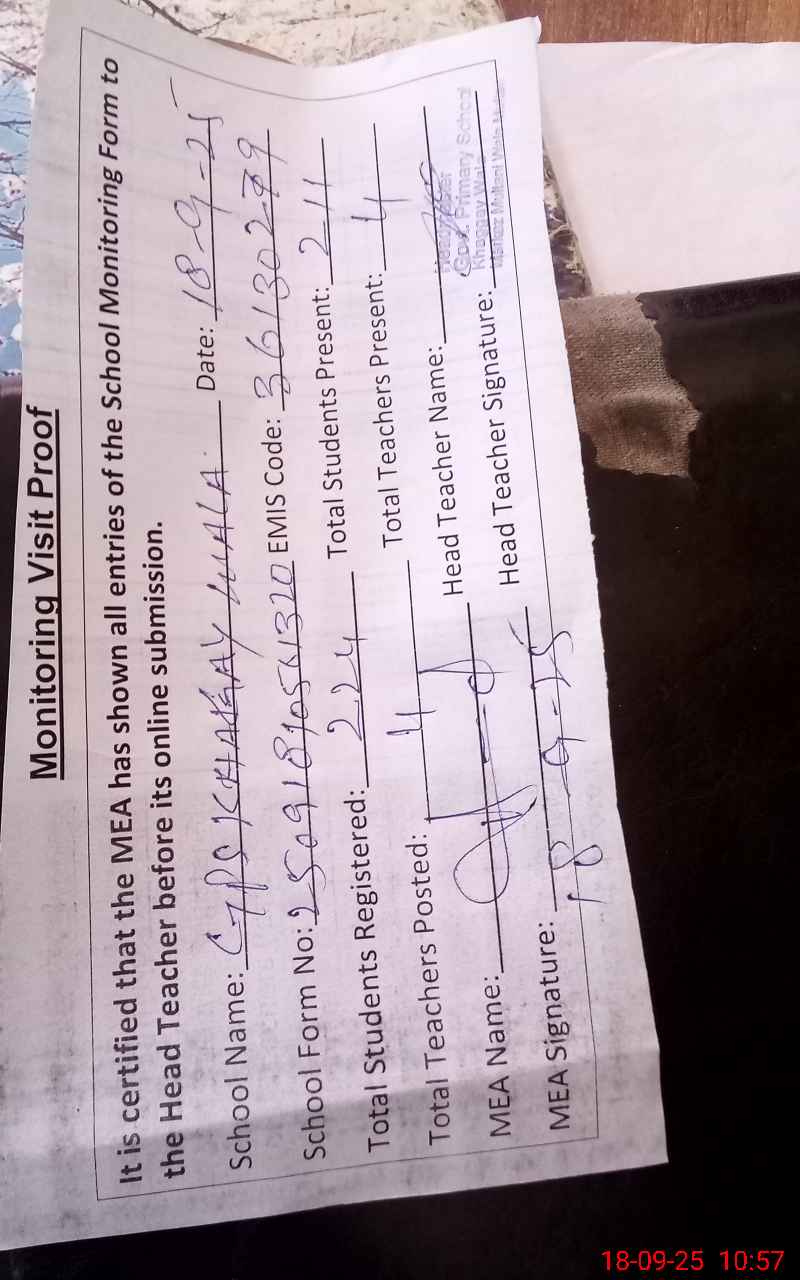 Monitoring Visit Proof
It is certified that the MEA has shown all entries of the School Monitoring Form to
the Head Teacher before its online submission.
School Name: GPS KHAGGAY WALA Date: 18-9-25
School Form No: 25091810561320 EMIS Code: 36130279
Total Students Registered: 224 Total Students Present: 211
Total Teachers Posted: 4 Total Teachers Present: 4
MEA Name: Head Teacher Name:
MEA Signature: 18-9-25 Head Teacher Signature:
Govt. Primary School
Khaggay Wala
Markaz Multani Wala
18-09-25 10:57